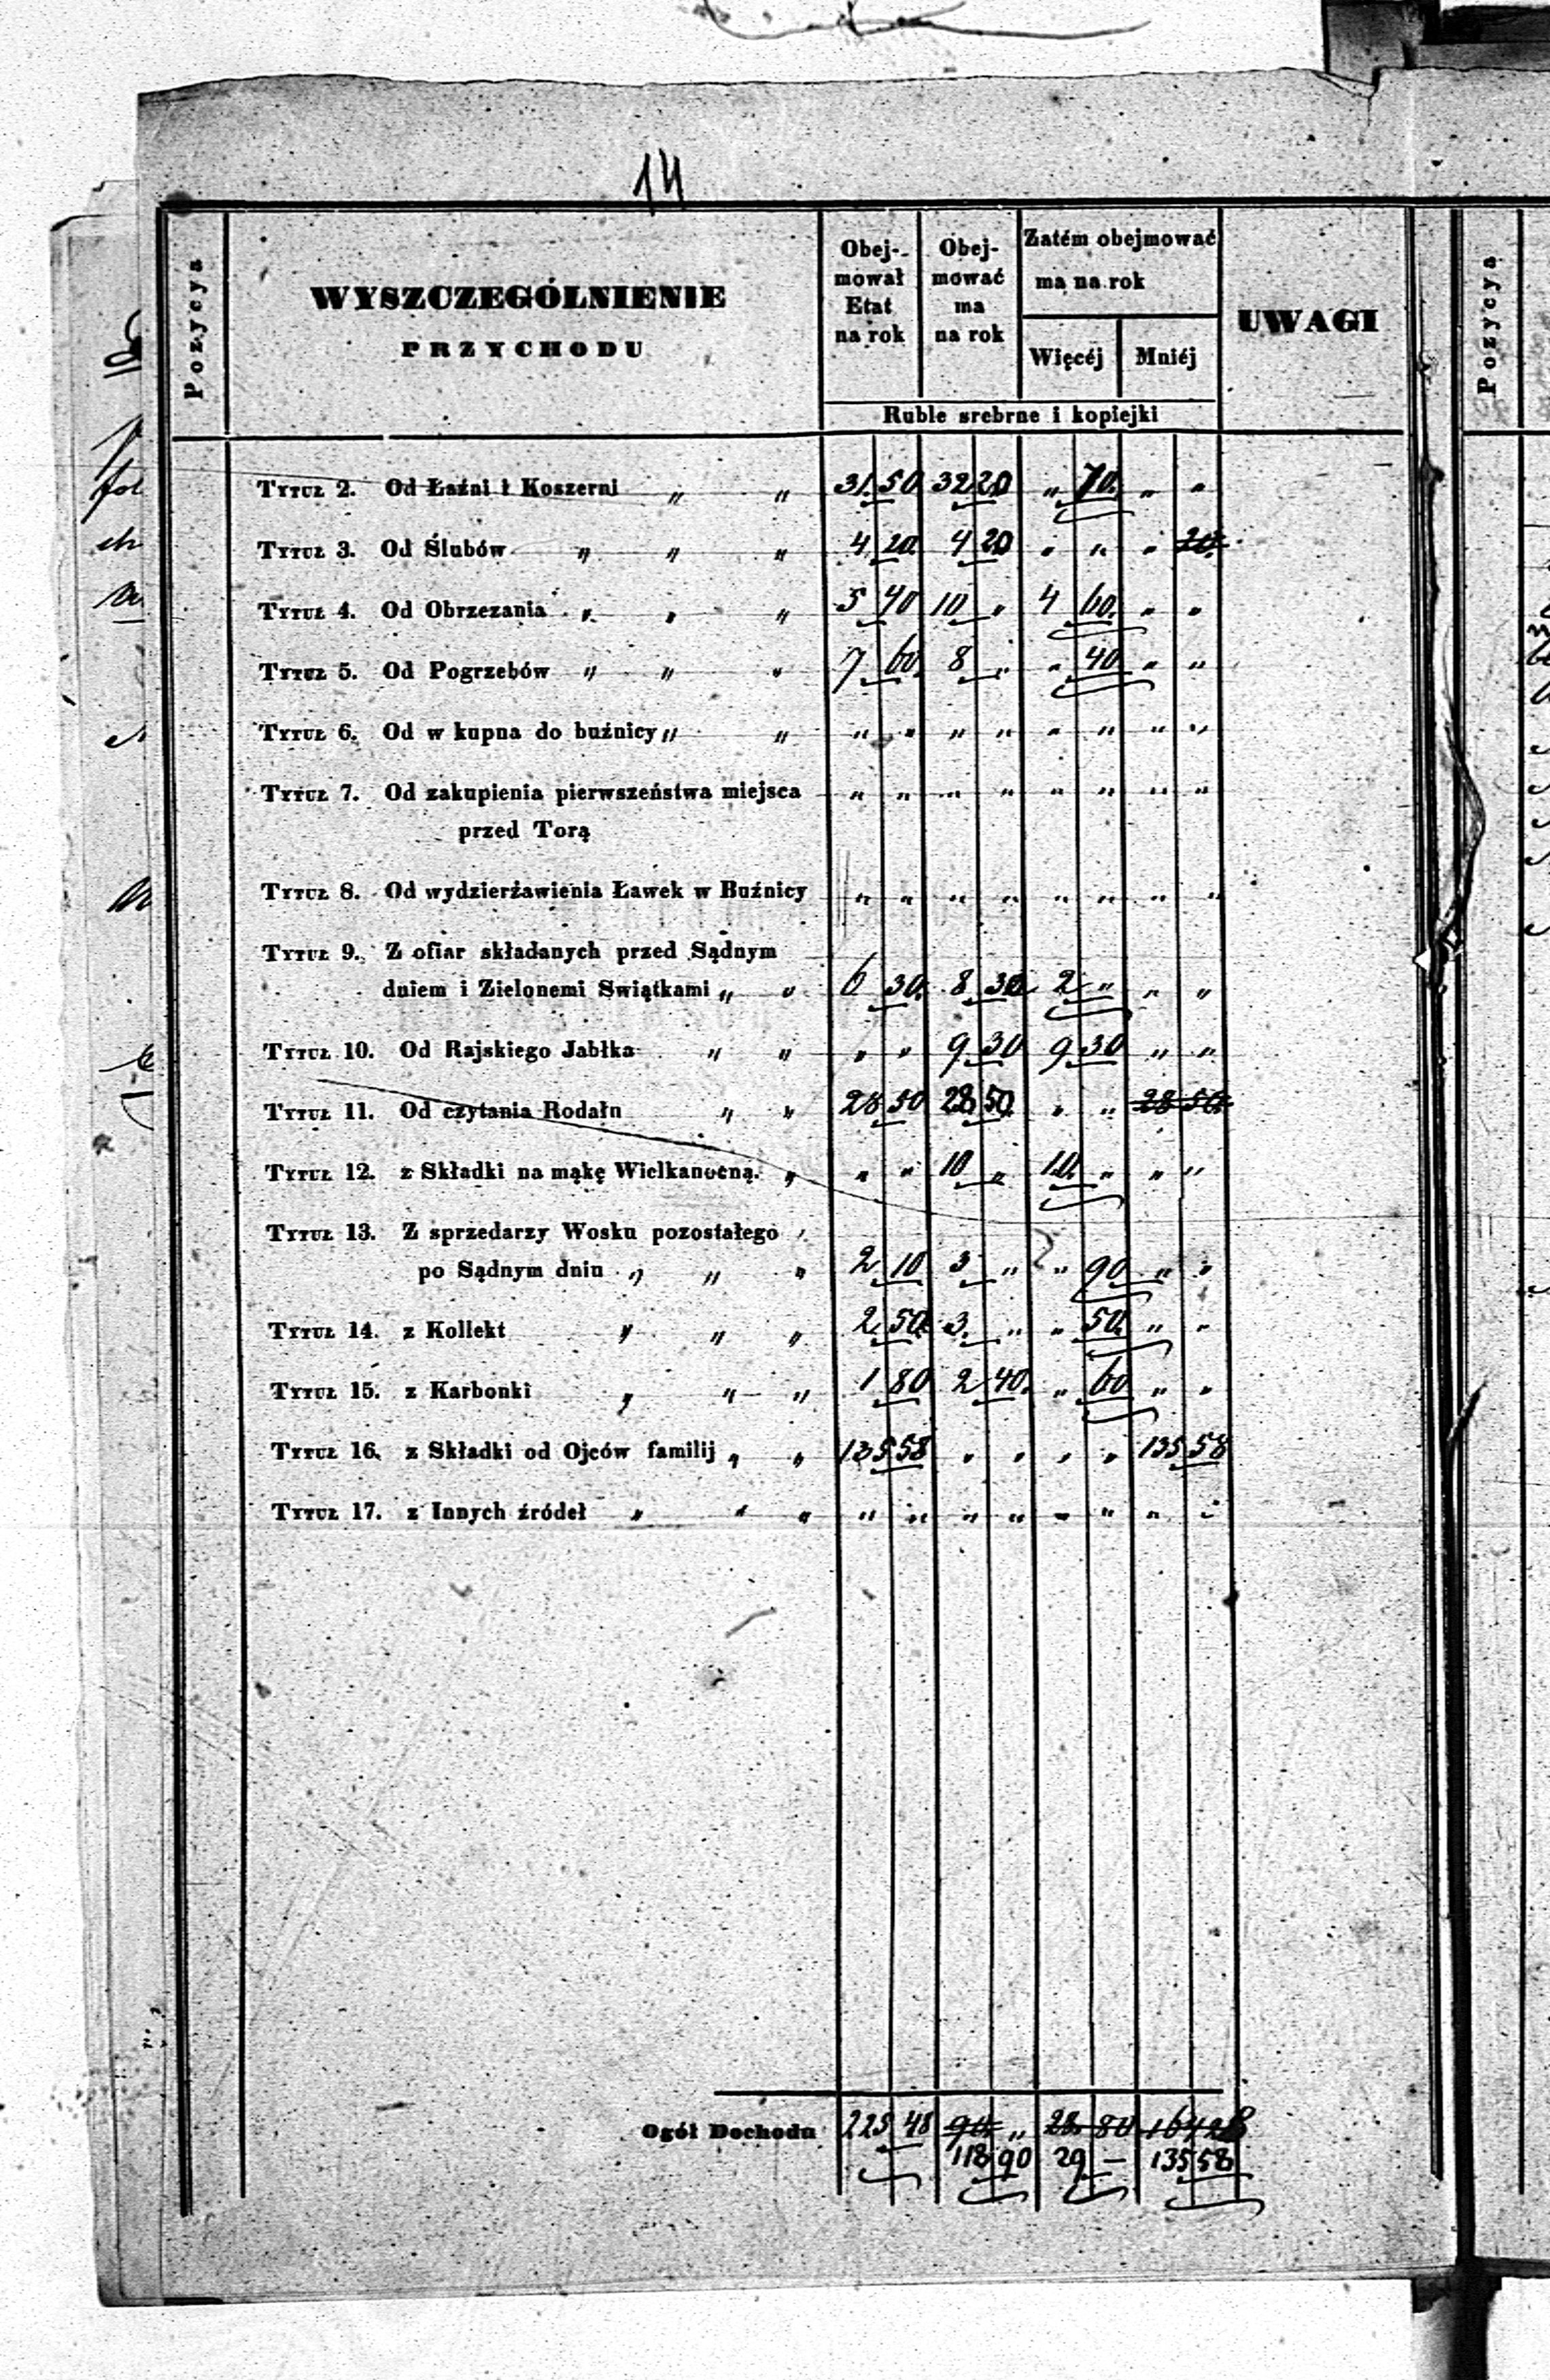 14
Pozycya
WYSZCZEGÓLNIENIE
PRZYCHODU
Obej-
mował
Etat
na rok
Obej-
mować
ma
na rok
Zatém obejmować
ma na rok
Więcéj
Mniéj
Ruble srebrne i kopiejki
UWAGI
Pozycya
Tytuł 2. Od Łaźni i Koszerni „ „ 31. 50 32 20 „ 70. „ „
Tytuł 3. Od Ślubów „ „ „ 4 20 4 20 „ „ „ 20.
Tytuł 4. Od Obrzezania „ „ „ 5 40 10 „ 4 60. „ „
Tytuł 5. Od Pogrzebów „ „ „ 7 60. 8 „ „ 40 „ „
Tytuł 6. Od w kupna do buźnicy „ „ „ „ „ „ „ „ „ „
Tytuł 7. Od zakupienia pierwszeństwa miejsca „ „ „ „ „ „ „ „
przed Torą
Tytuł 8. Od wydzierżawienia Ławek w Buźnicy „ „ „ „ „ „ „ „
Tytuł 9. Z ofiar składanych przed Sądnym
dniem i Zielonemi Swiątkami „ „ 6 30. 8 30 2 „ „ „
Tytuł 10. Od Rajskiego Jabłka „ „ „ „ 9 30 9 30 „ „
Tytuł 11. Od czytania Rodałn „ „ 28 50 28 50. „ „ 28 50.
Tytuł 12. z Składki na mąkę Wielkanocną. „ „ „ 10 „ 10. „ „ „
Tytuł 13. Z sprzedarzy Wosku pozostałego „
po Sądnym dniu „ „ „ 2 10 3 „ „ 90 „ „
Tytuł 14. z Kollekt „ „ „ 2. 50. 3. „ „ 50. „ „
Tytuł 15. z Karbonki „ „ „ 1 80 2 40. „ 60 „ „
Tytuł 16. z Składki od Ojców familij „ „ 135 58 „ „ „ „ 135 58
Tytuł 17. z Innych źródeł „ „ „ „ „ „ „ „ „ „ „
Ogół Dochodu 225 48 90. „ 28. 80 164 28
118 90 29 — 135 58